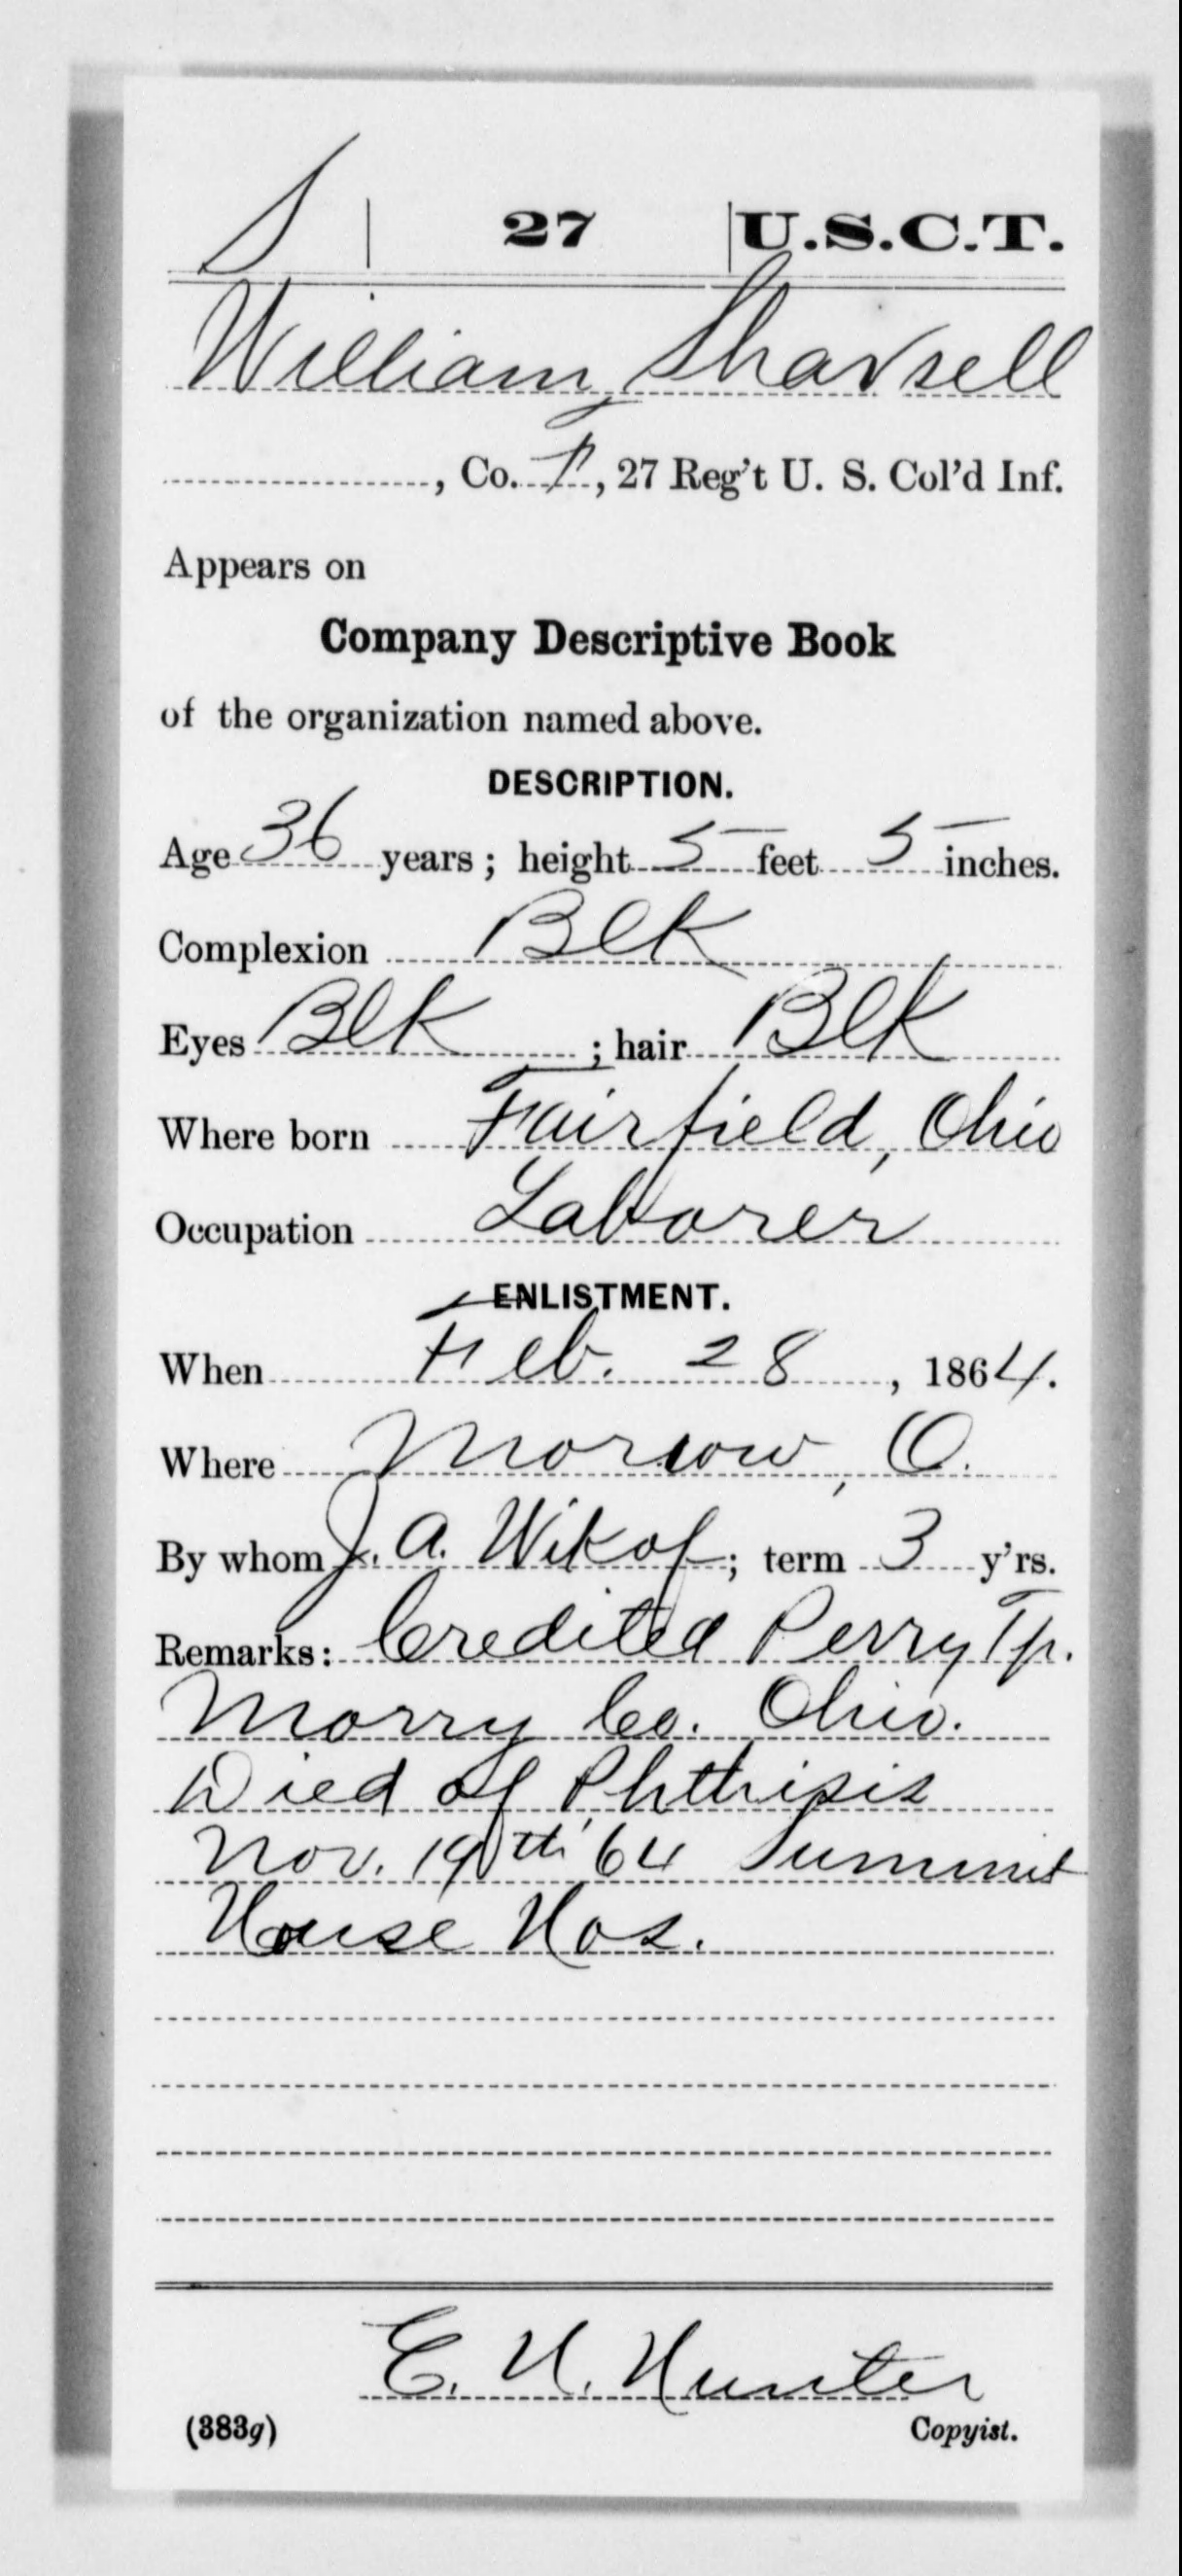 S | 27 | U.S.C.T.
William Sharsell
, Co. F, 27 Reg't U. S. Col'd Inf.
Appears on
Company Descriptive Book
of the organization named above.
DESCRIPTION.
Age 36 years; height 5 feet 5 inches.
Complexion Blk
Eyes Blk; hair Blk
Where born Fairfield, Ohio
Occupation Laborer
ENLISTMENT.
When Feb. 28, 1864.
Where Morrow, O.
By whom J. A. Wikof; term 3 y'rs.
Remarks: Credited Perry Tp.
Morry Co. Ohio.
Died of Phthisis
Nov. 19th 64 Summit
House Hos.
E. H. Hunter
(383g) Copyist.